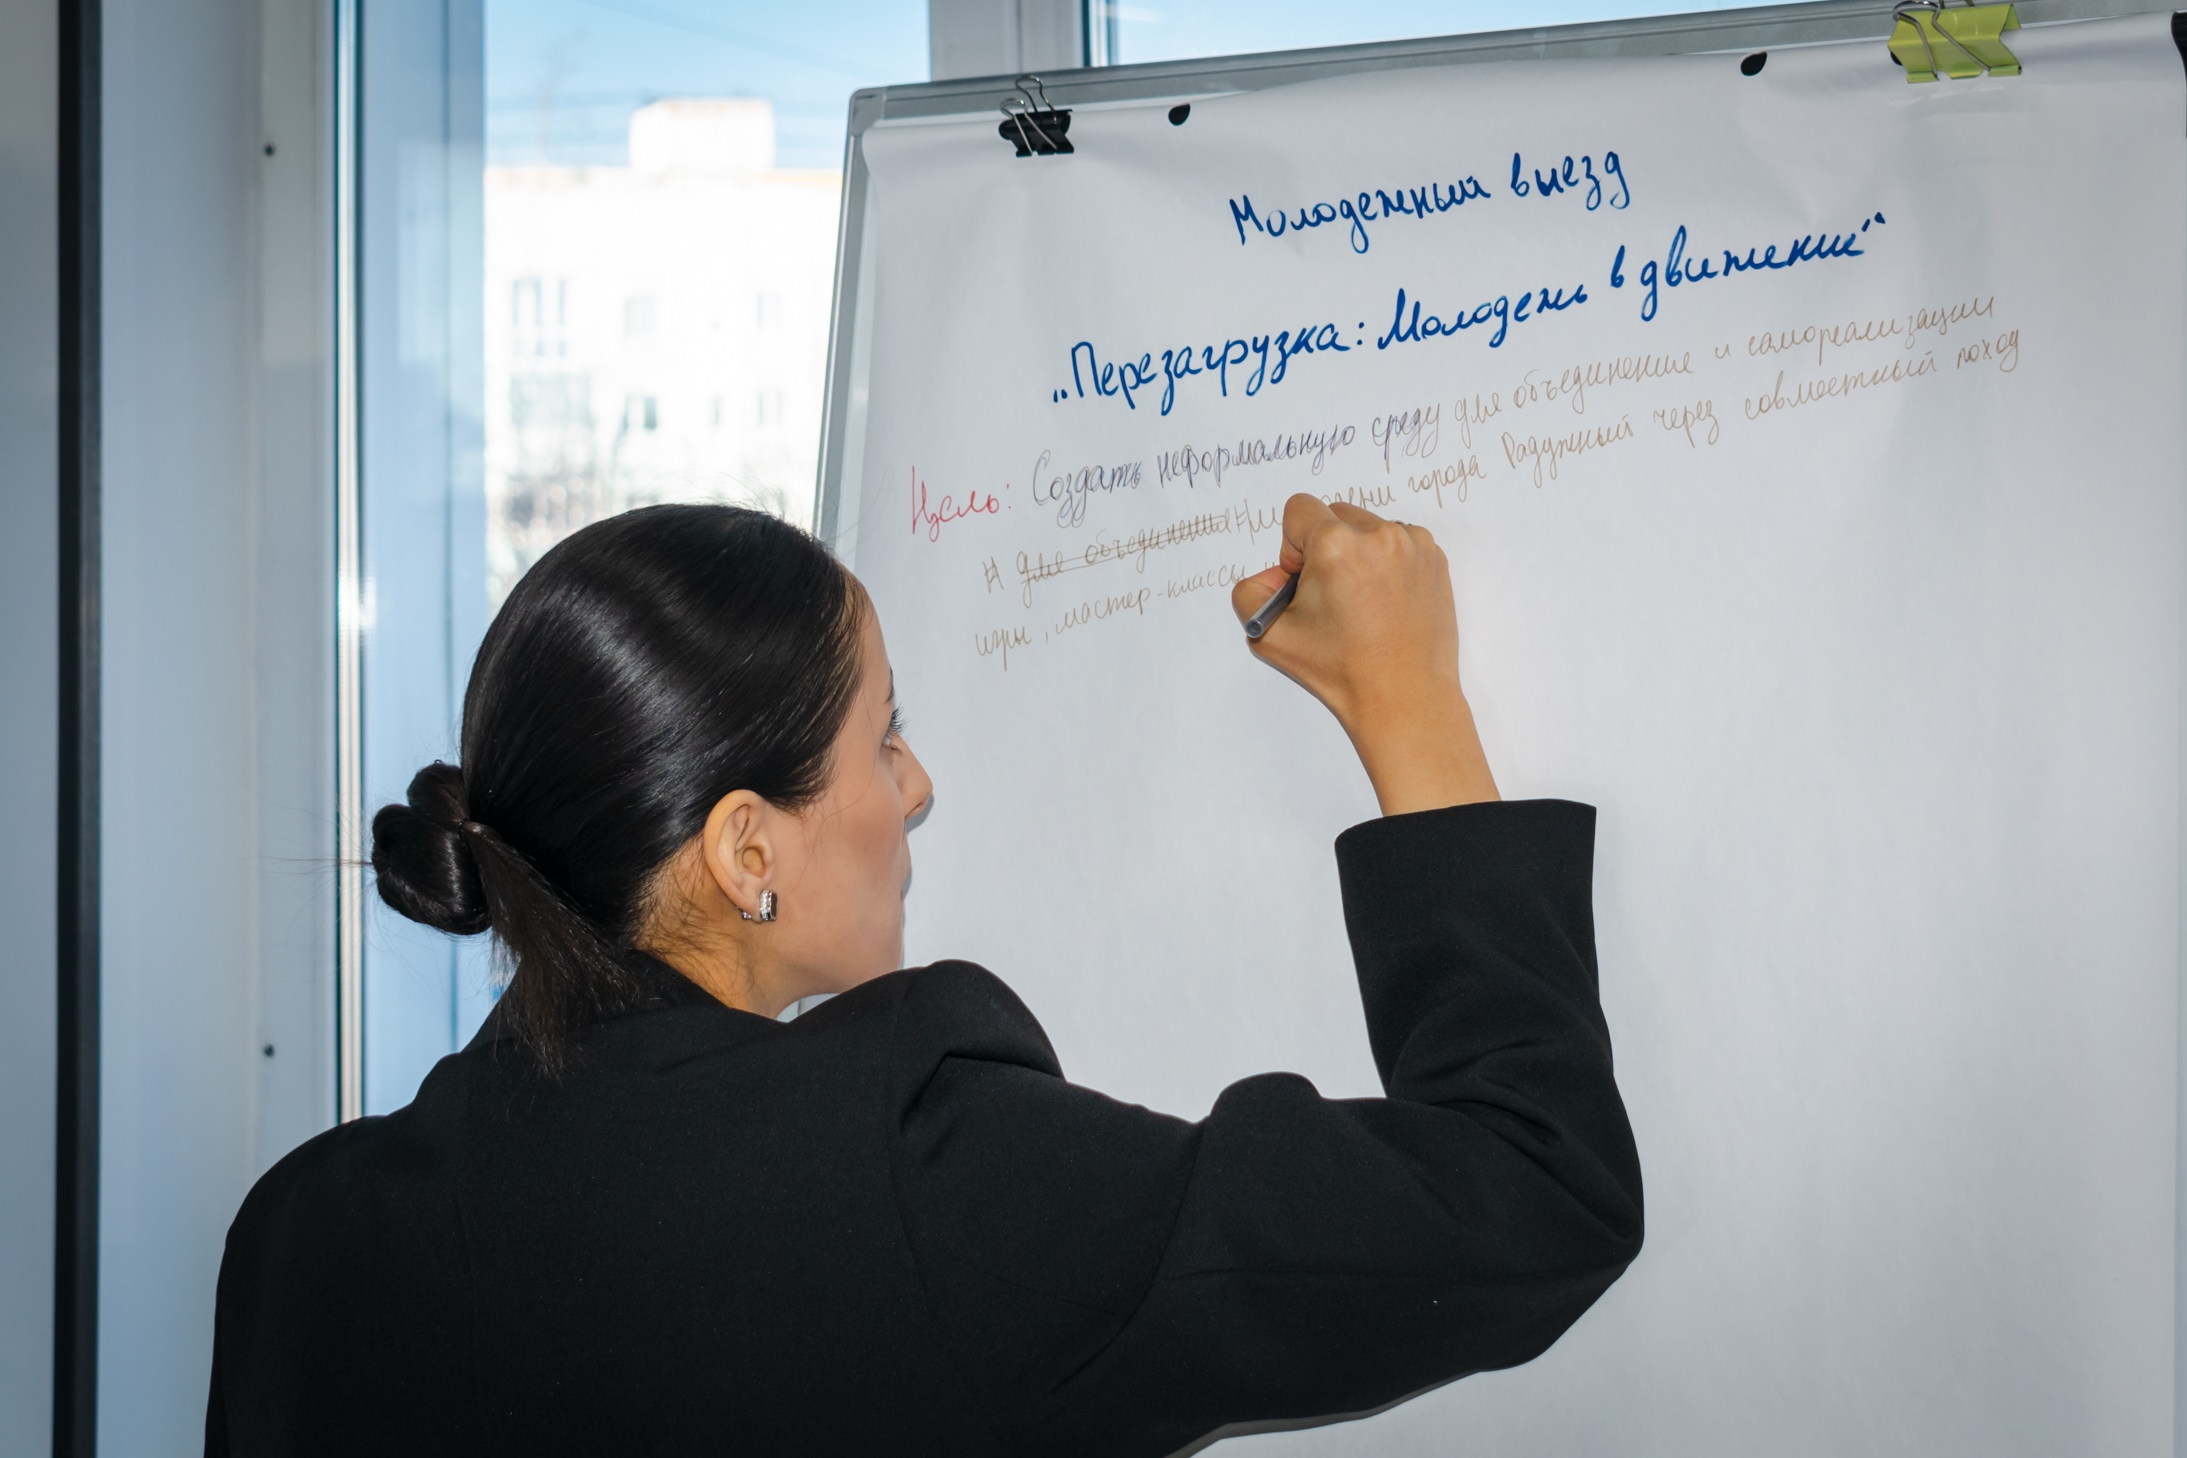 Молодежный выезд
„Перезагрузка: Молодежь в движении“
Цель: Создать неформальную среду для объединения и самореализации
для объединения города Радужный через совместный поход
игры, мастер-классы